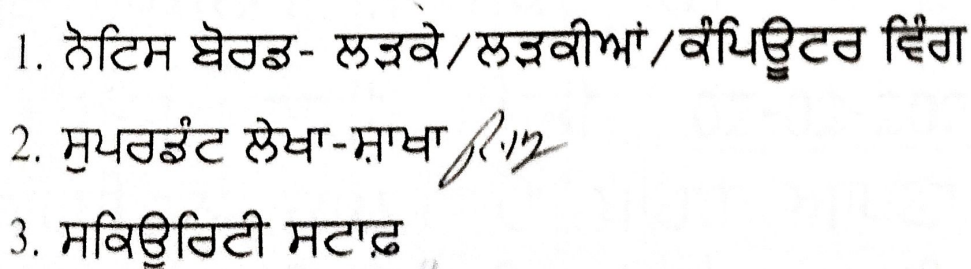 1. ਨੋਟਿਸ ਬੋਰਡ- ਲੜਕੇ/ਲੜਕੀਆਂ/ਕੰਪਿਊਟਰ ਵਿੰਗ
2. ਸੁਪਰਡੰਟ ਲੇਖਾ-ਸ਼ਾਖਾ
3. ਸਕਿਉਰਿਟੀ ਸਟਾਫ਼